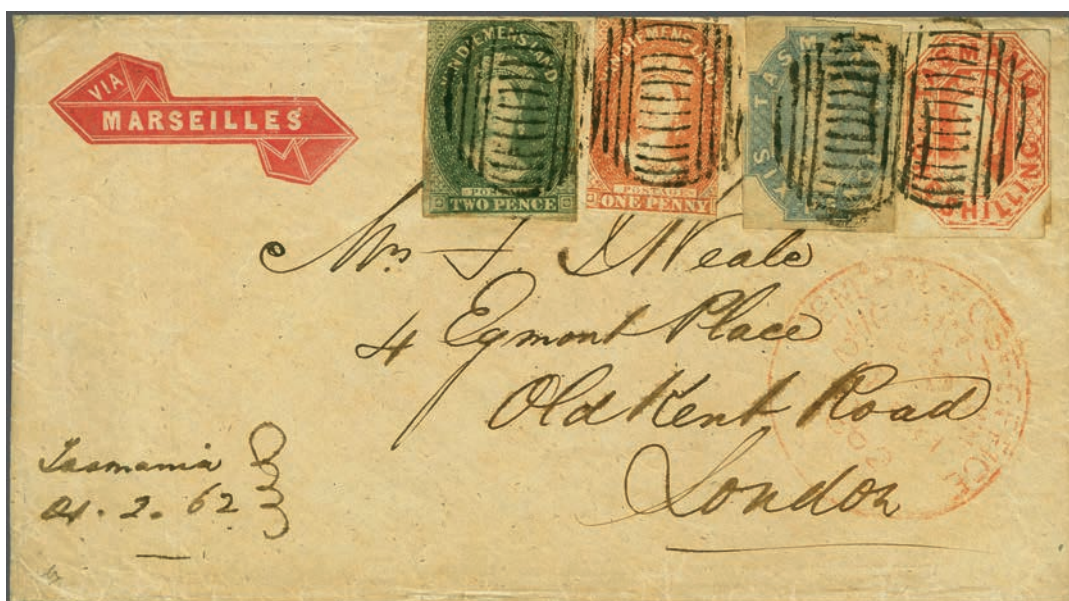 VIA
MARSEILLES
VAN DIEMENS LAND
POSTAGE
TWO PENCE
VAN DIEMENS LAND
POSTAGE
ONE PENNY
TASM
SIX
TASM
SHILLING
Mrs J. Neale
4 Egmont Place
Old Kent Road
London
Tasmania
Oct. 2. 62